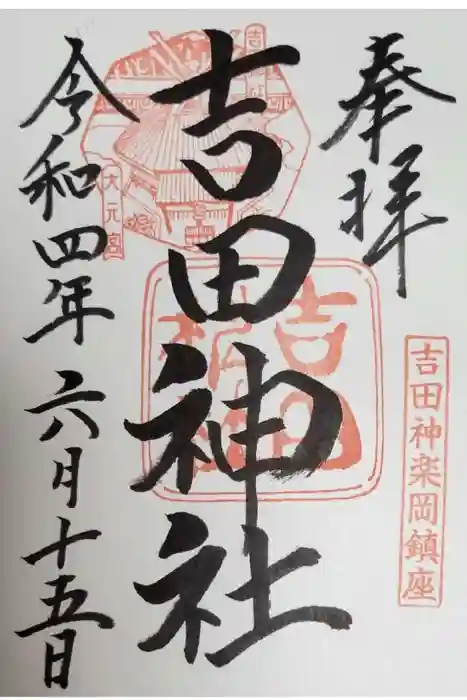 奉拝
吉田神楽岡鎮座
吉田神社
大元宮
令和四年六月十五日